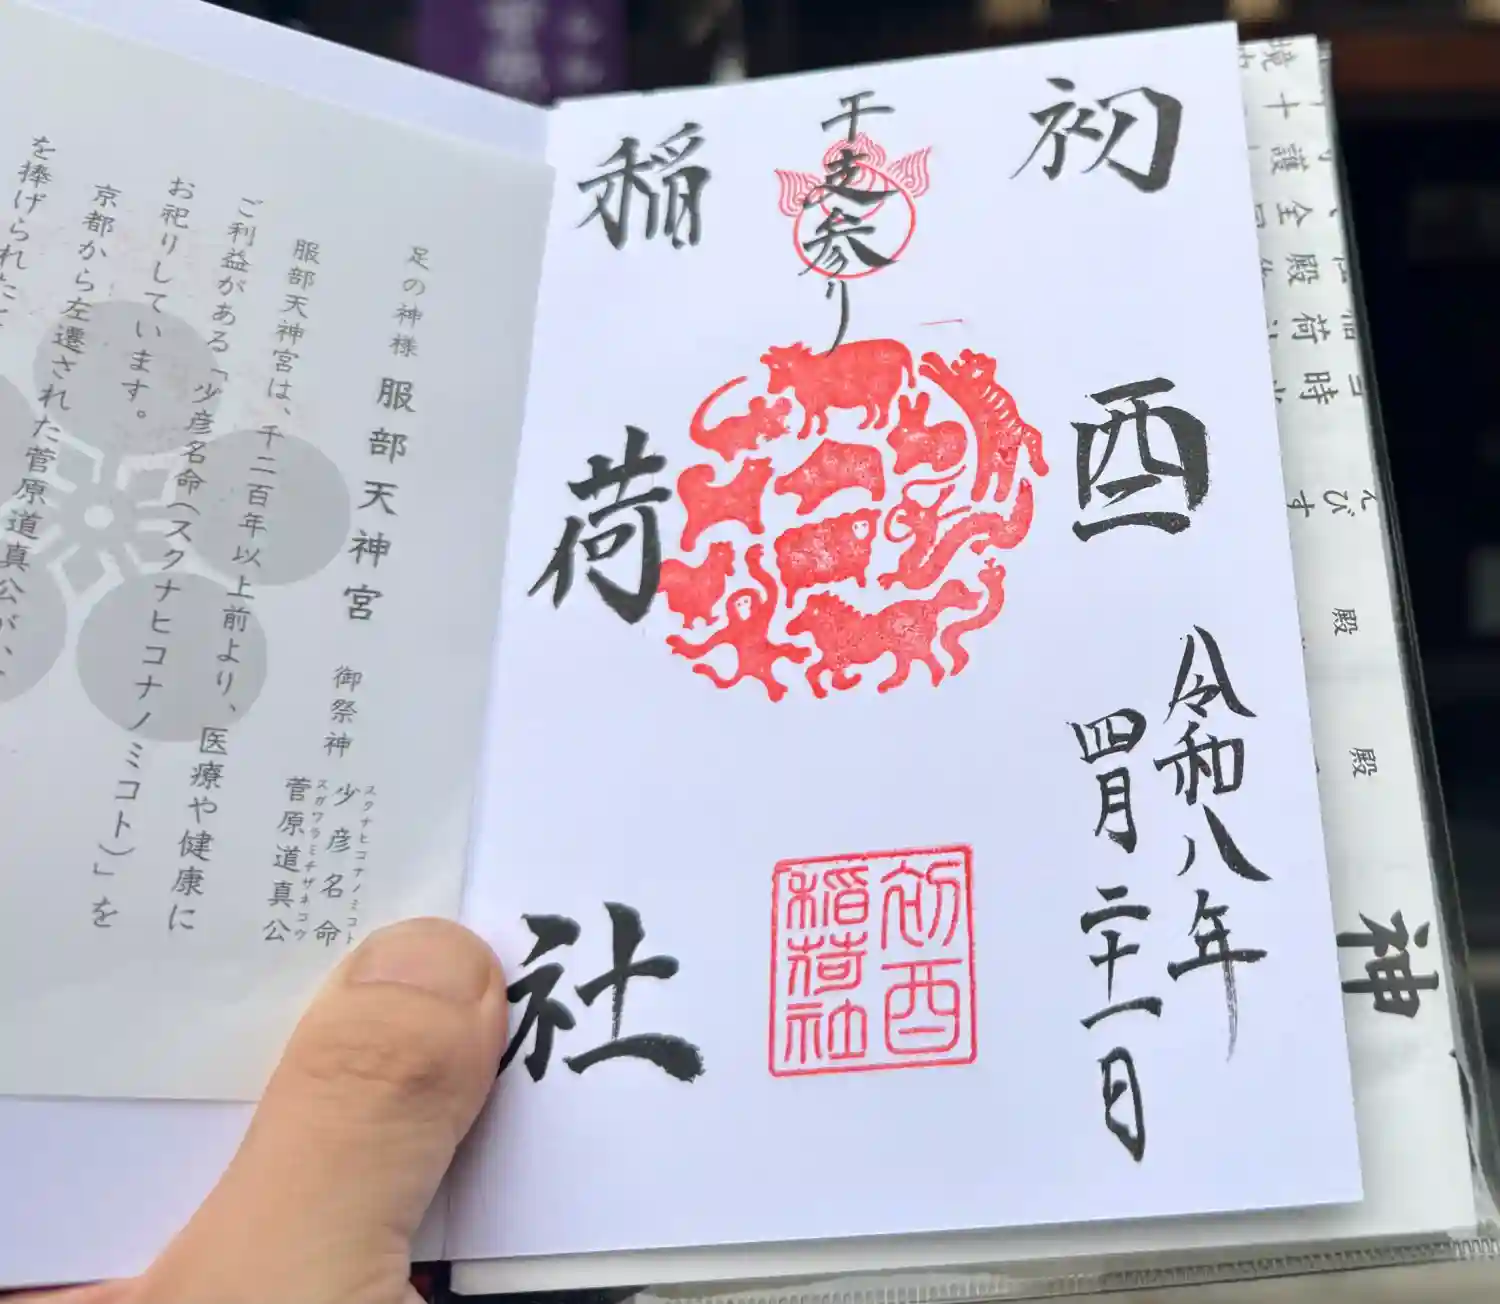 初酉
干支参り
稲荷社
令和八年
四月二十一日
初酉
稲荷社
足の神様 服部天神宮 御祭神 少彦名命
スクナヒコナノミコト
菅原道真公
スガワラミチザネコウ
服部天神宮は、千二百年以上前より、医療や健康に
ご利益がある「少彦名命(スクナヒコナノミコト)」を
お祀りしています。
京都から左遷された菅原道真公が、
を捧げられた
神
えびす
殿
殿